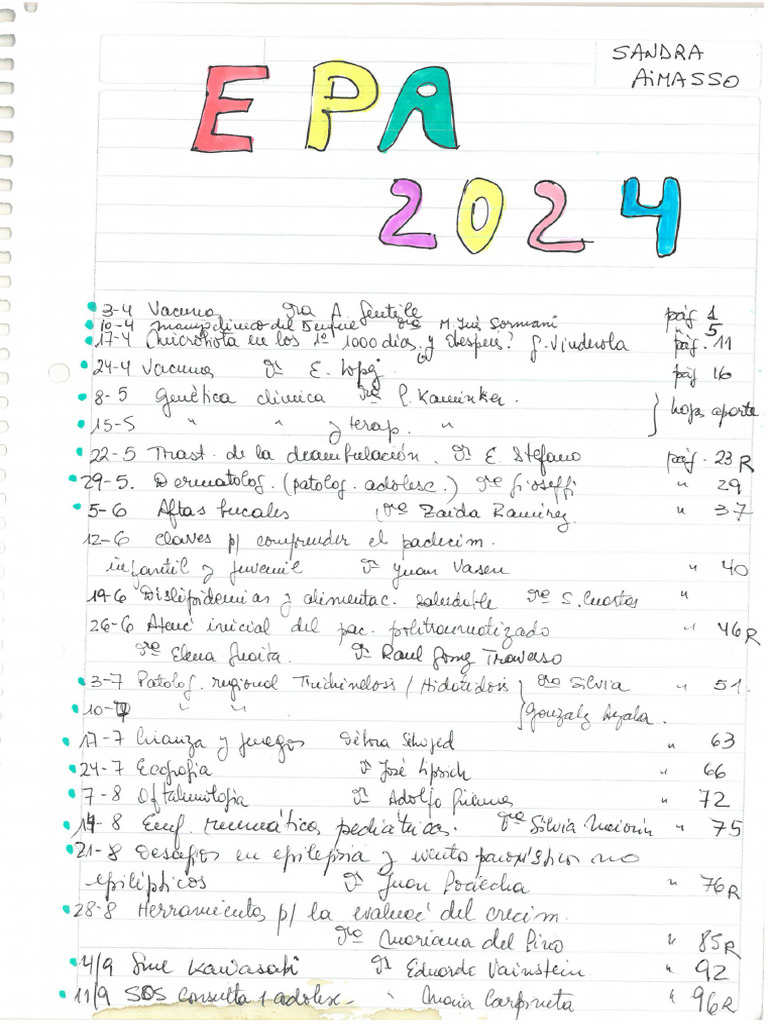 SANDRA
AIMASSO
EPA
2024
3-4 Vacunas Dra A. Gentile pág 1
10-4 manejo clínico del Dengue Dra M. Inés Sormani " 5
17-4 Microbiota en los 1º 1000 días ¿y después? G. Vinderola pág. 11
24-4 Vacunas Dr E. López pág 16
8-5 Genética clínica Dra P. Kaminker. hojas aparte
15-5 " " y terap. "
22-5 Trast. de la deambulación. Dr E. Stefano pág. 23R
29-5. Dermatolog. (patolog. adolesc.) Dra Gioseffi " 29
5-6 Aftas bucales Dra Zaida Ramírez " 37
12-6 Claves p/ comprender el padecim.
infantil y juvenil Dr Juan Vasen " 40
19-6 Dislipidemias y alimentac. saludable Dra S. Cuestas "
26-6 Atenc inicial del pac. politraumatizado " 46R
Dra Elena Dr Raul Gomz Traverso
3-7 Patolog. regional Trichinelosis / Hidatidosis Dra Silvia " 51.
10-7 " " Gonzalz Ayala.
17-7 Crianza y juegos Débora " 63
24-7 Ecografia Dr José Lipsich " 66
7-8 Oftalmologia Dr Adolfo " 72
14-8 Enf. reumáticas pediátricas. Dra Silvia " 75
21-8 Desafíos en epilepsia y evento paroxístico no
epilépticos Dr Juan Pociecha " 76R
28-8 Herramientas p/ la evaluac del crecim.
Dra Mariana del Pino " 85R
4/9 Sme Kawasaki Dr Eduardo Vainstein. " 92
11/9 SOS Consulta 1 adolesc - " Maria " 96R